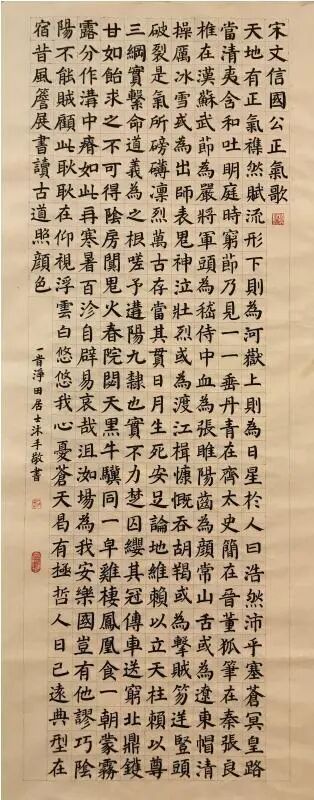 宋文信國公正氣歌
天地有正氣襍然賦流形下則為河嶽上則為日星於人曰浩然沛乎塞蒼冥皇路
當清夷含和吐明庭時窮節乃見一一垂丹青在齊太史簡在晉董狐筆在秦張良
椎在漢蘇武節為嚴將軍頭為嵇侍中血為張睢陽齒為顏常山舌或為遼東帽清
操厲冰雪或為出師表鬼神泣壯烈或為渡江楫慷慨吞胡羯或為擊賊笏逆豎頭
破裂是氣所磅礴凜烈萬古存當其貫日月生死安足論地維賴以立天柱賴以尊
三綱實繫命道義為之根嗟予遘陽九隸也實不力楚囚纓其冠傳車送窮北鼎鑊
甘如飴求之不可得陰房闃鬼火春院閟天黑牛驥同一皁雞棲鳳凰食一朝蒙霧
露分作溝中瘠如此再寒暑百沴自辟易哀哉沮洳場為我安樂國豈有他謬巧陰
陽不能賊顧此耿耿在仰視浮雲白悠悠我心憂蒼天曷有極哲人日已遠典型在
宿昔風簷展書讀古道照顏色
一音淨田居士沐手敬書